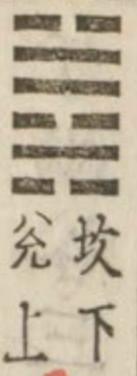 坎下
兊上